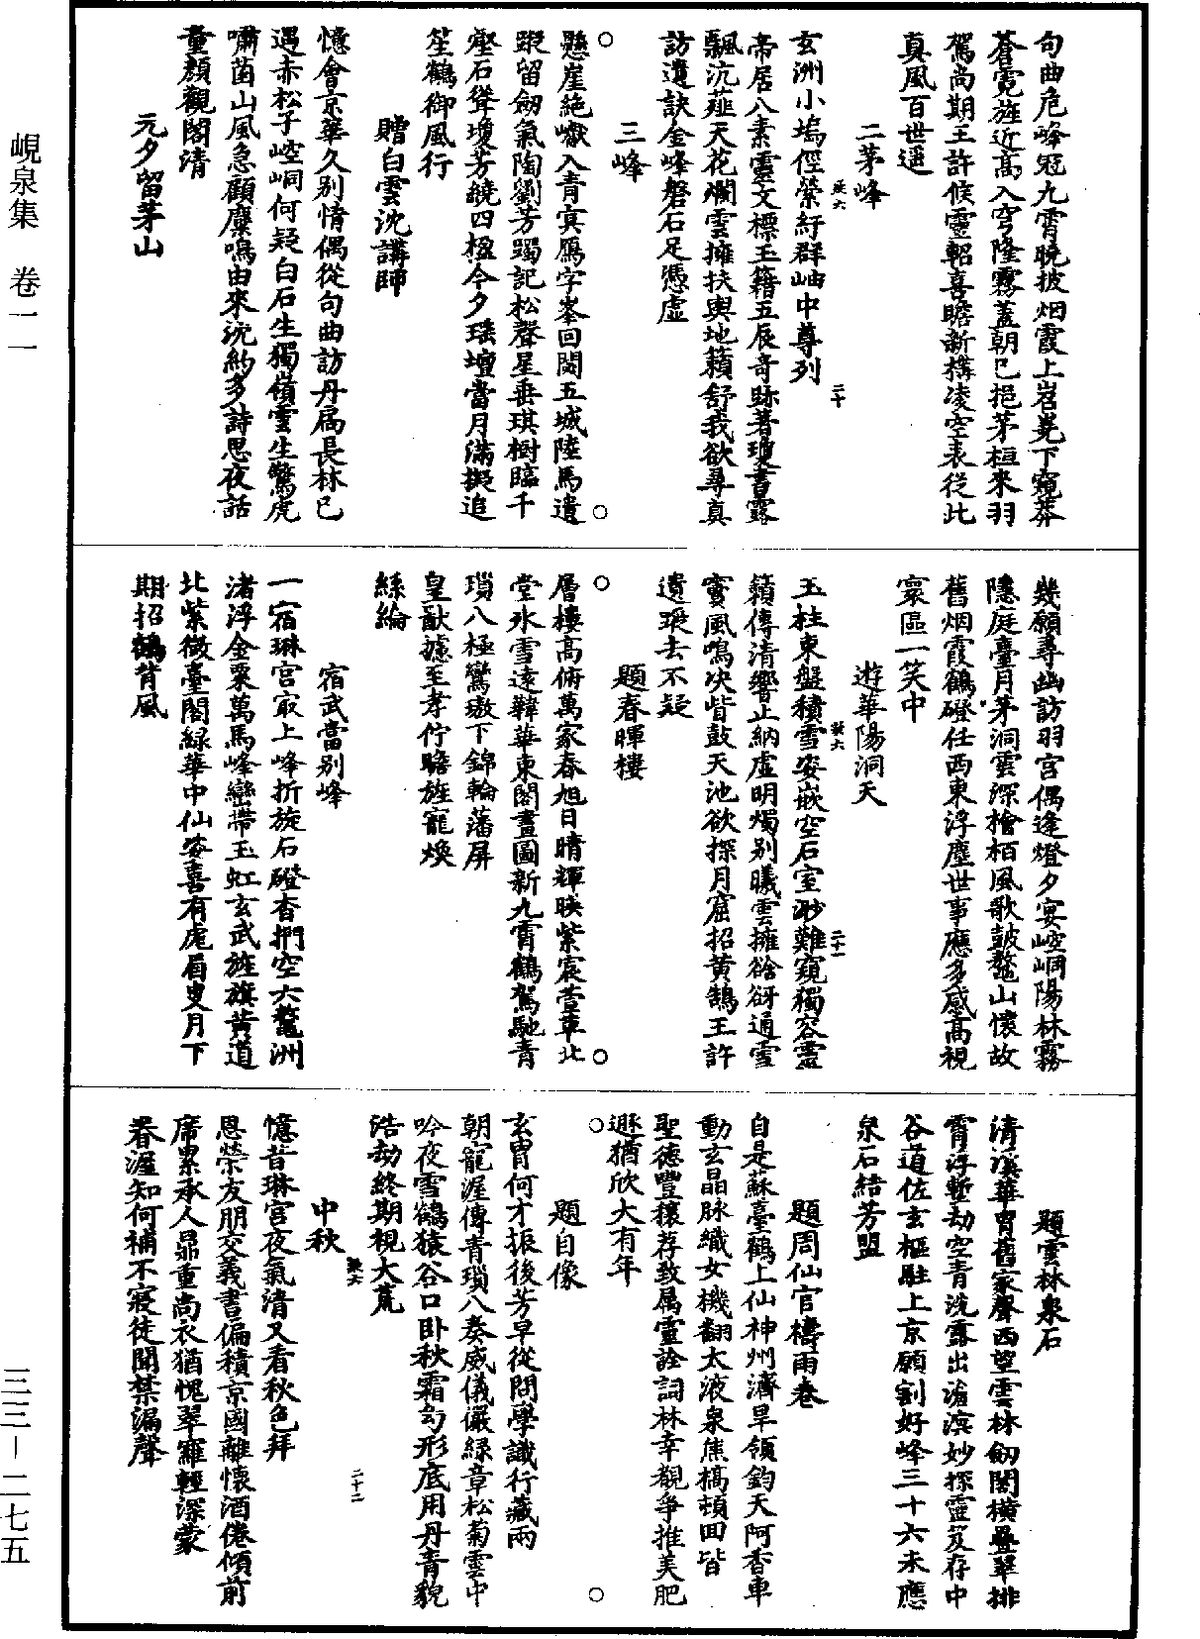 句曲危峰冠九霄曉披烟霞上岧嶤下窺莽
蒼霓旌近高入穹隆霧蓋朝已挹茅桓來羽
駕尚期王許候靈軺喜瞻新構凌空表從此
真風百世遥
二茅峰
玄洲小塢徑縈紆群岫中尊列
帝居八素靈文標玉籍五辰奇跡著瓊書露
飄沆薤天花爛雲擁扶輿地籟舒我欲尋真
訪遺訣金峰磐石足憑虛
三峰
懸崖絶巘入青㝠鴈字峯回閟五城陸馬遺
蹤留劒氣陶劉芳躅記松聲星垂琪樹臨千
壑石聳瓊芳繞四楹今夕瑤壇當月滿擬追
笙鶴御風行
贈白雲沈講師
憶會京華久别情偶從句曲訪丹扃長林已
遇赤松子崆峒何疑白石生獨嶺雲生驚虎
嘯菌山風急顧麋鳴由來沈約多詩思夜話
童顔觀閣清
元夕留茅山
幾願尋幽訪羽宫偶逢燈夕宴崆峒陽林霧
隱庭臺月茅洞雲深檜栢風歌鼓鼇山懷故
舊烟霞鶴磴任西東浮塵世事應多感高視
寰區一笑中
遊華陽洞天
玉柱東盤積雪安嵌空石室渺難窺獨容靈
籟傳清響止納虛明燭别曦雲擁谽谺通雪
竇風鳴決眥鼓天池欲探月窟招黄鵠王許
遺踪去不疑
題春暉樓
層樓高俯萬家春旭日晴輝映紫宸萱草北
堂氷雪遠韡華東閣畫圖新九霄鶴駕馳青
瑣八極鸞璈下錦輪藩屏
皇猷攄至孝佇瞻旌寵煥
絲綸
宿武當别峰
一宿琳宫㝡上峰折旋石磴杳捫空六鼇洲
渚浮金粟萬馬峰巒帶玉虹玄武旌旗黄道
北紫微臺閣緑華中仙安喜有厖眉叟月下
期招鶴背風
題雲林泉石
清溪華胄舊家聲西望雲林劒閣横疊翠排
霄浮塹劫空青洗露出滄溟妙探靈笈存中
谷道佐玄樞駐上京願割好峰三十六未應
泉石結芳盟
題周仙官禱雨卷
自是蘇臺鶴上仙神州濟旱領鈞天阿香車
動玄晶脉織女機翻太液泉焦槁頓回皆
聖德豐穰荐致属靈詮詞林幸覩爭推美肥
遯猶欣大有年
題自像
玄胄何才振後芳早從問學識行藏兩
朝寵渥傳青瑣八奏威儀儼緑章松菊雲中
吟夜雪鶴猿谷口卧秋霜勾形底用丹青貌
浩劫終期視大荒
中秋
憶昔琳宫夜氣清又看秋色拜
恩榮友朋交義書偏積京國離懷酒倦傾前
席累承人鼎重尚衣猶愧翠羅輕深蒙
春渥知何補不寐徒聞禁漏聲
峴泉集　卷一一
三三－二七五